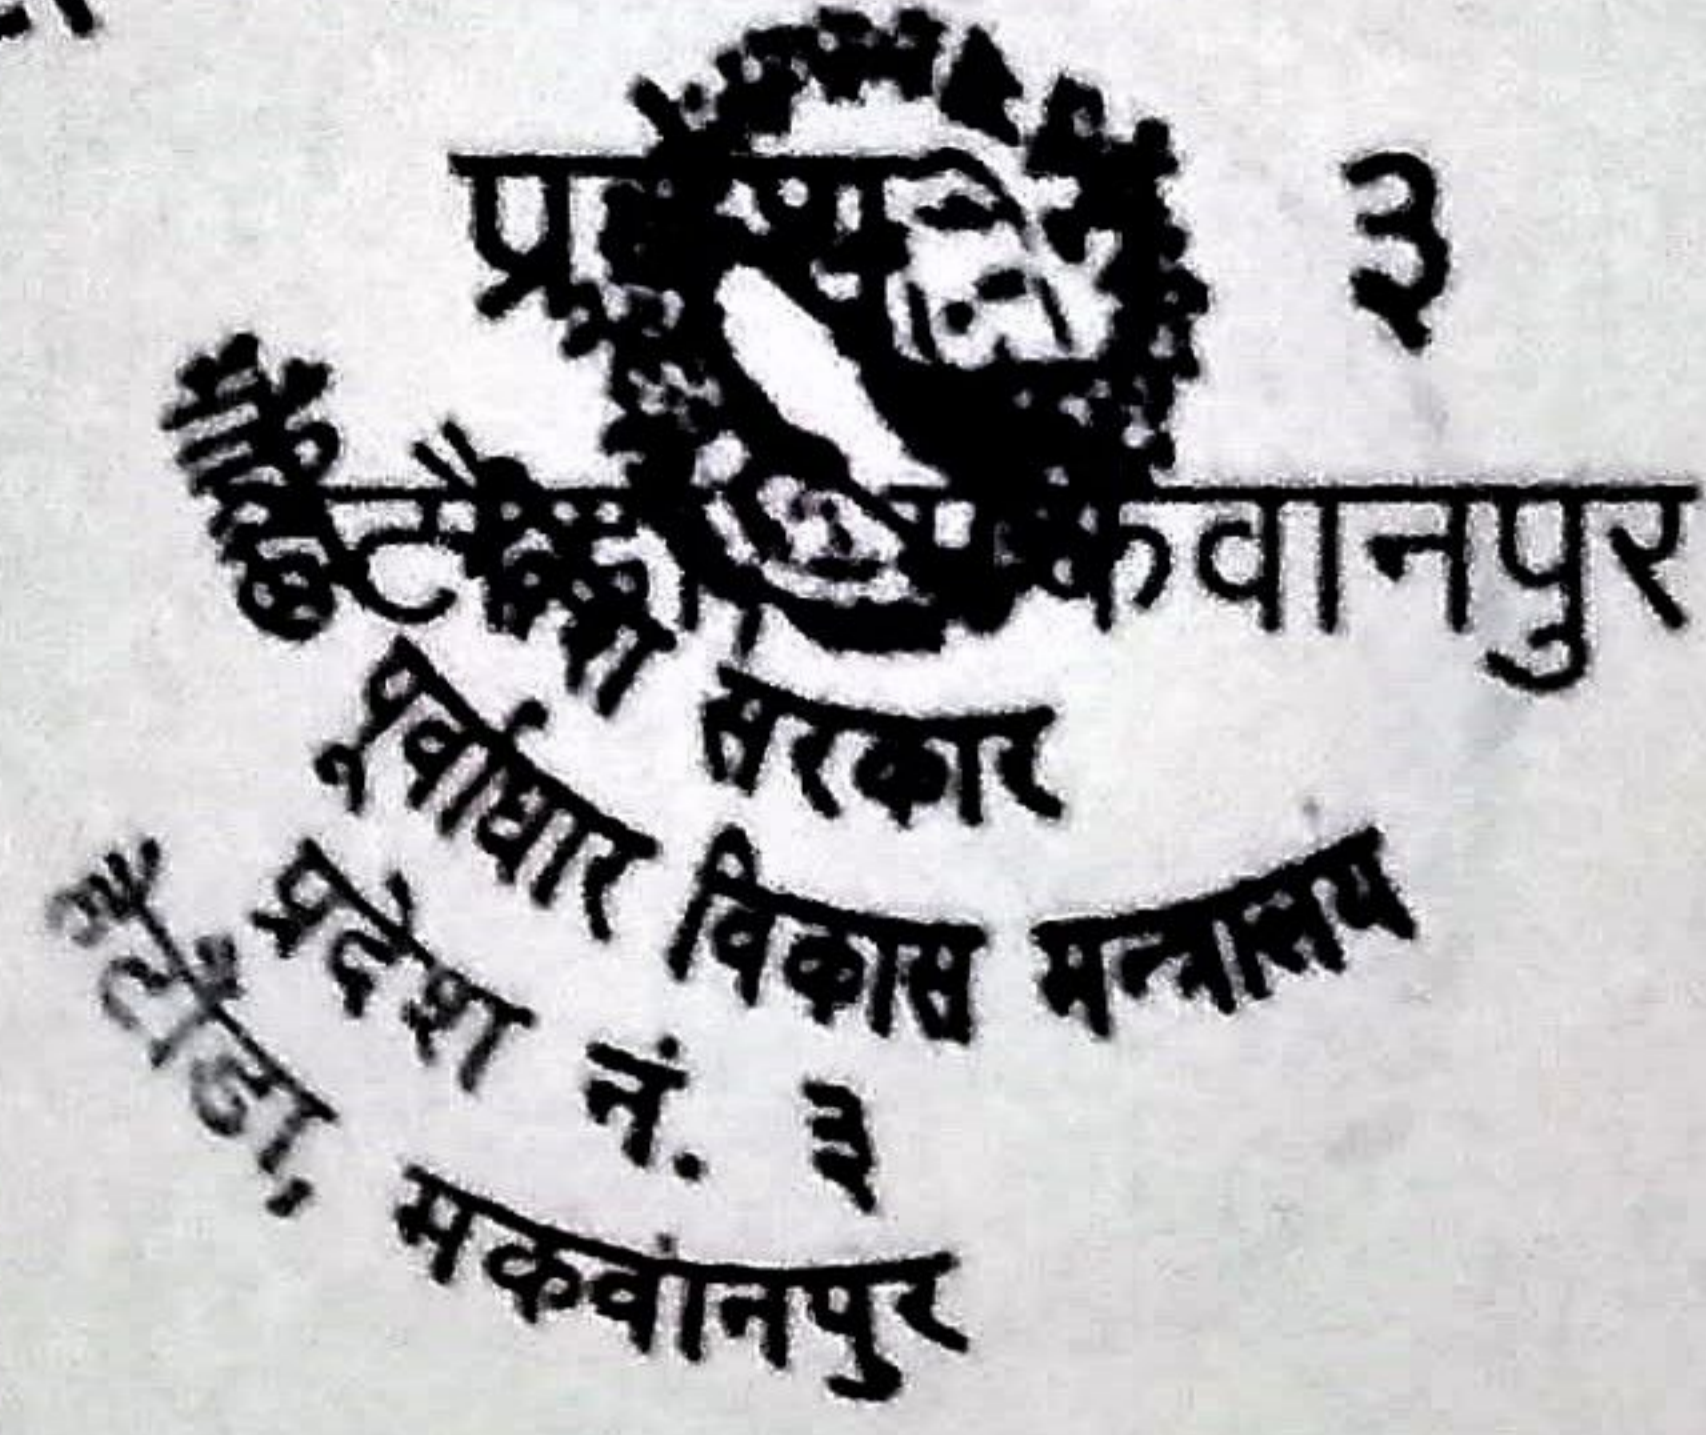 ३
मकवानपुर
सरकार
पूर्वाधार विकास मन्त्रालय
प्रदेश नं. ३
हेटौंडा, मकवानपुर